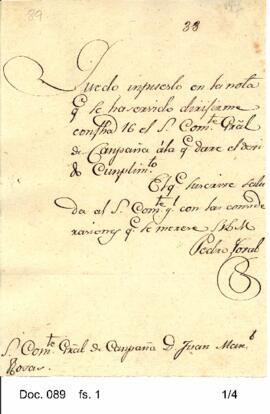 89
33
Quedo impuesto en la nota
q.e se ha servido dirijirme
con fha 16 el S.r Com.te Grãl
de Campaña á la q.e dare el devi
do Cumplim.to
El q.e suscrive salu
da al S.r Com.te g.l con las conside
raciones q.e se merece
Pedro Toral
S.r Com.te Grãl de Campaña D. Juan Man.l
Rosas
Doc. 089 fs. 1
1/4